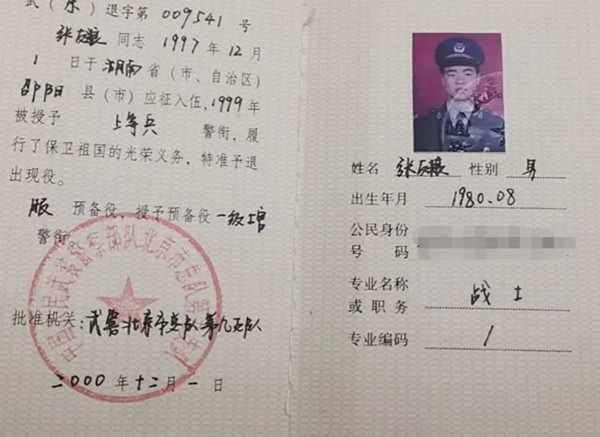 武（京）退字第009541号
同志1997年12月
1日于湖南省（市、自治区）
邵阳县（市）应征入伍，1999年
被授予上等兵警衔，履
行了保卫祖国的光荣义务，特准予退
出现役。
服预备役，授予预备役一级士官
警衔。
批准机关：武警北京市总队第九支队
二000年十二月一日
姓名 性别 男
出生年月 1980.08
公民身份
号码
专业名称 战士
或职务
专业编码 1